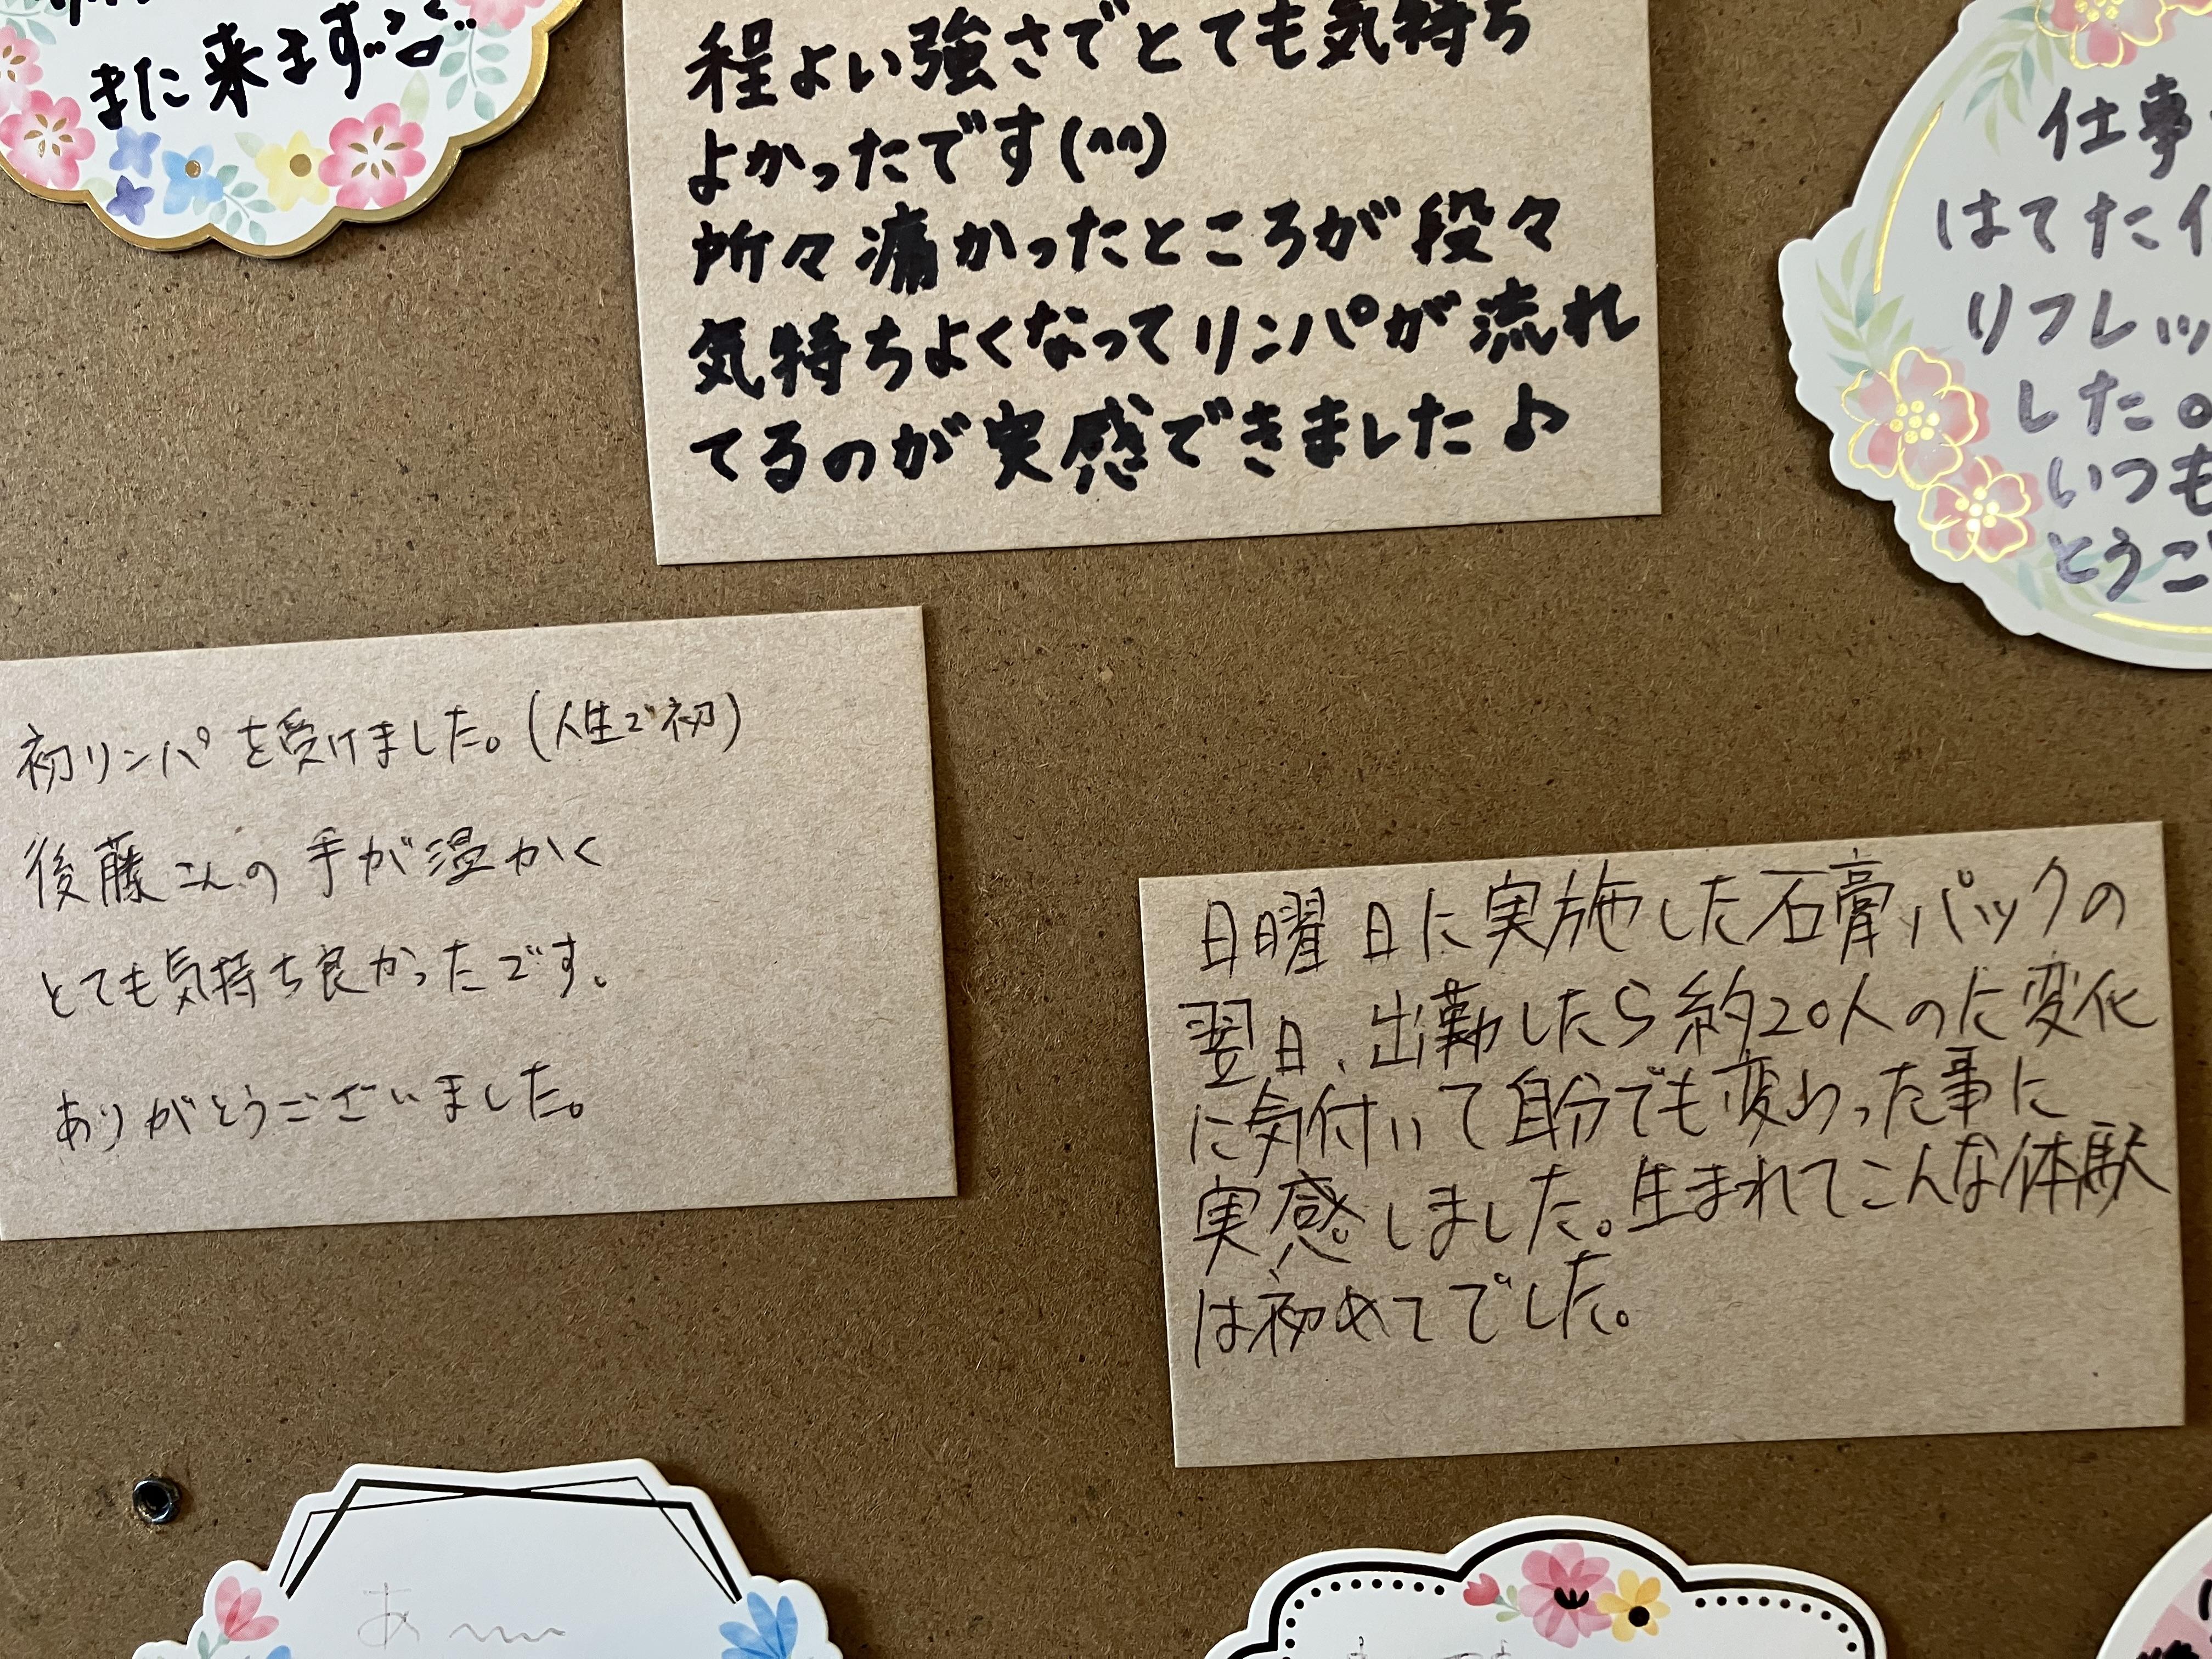 また来ます
程よい強さでとても気持ち
よかったです(^^)
所々痛かったところが段々
気持ちよくなってリンパが流れ
てるのが実感できました♪
仕事
はてた
リフレッ
した。
いつも
とうご
初リンパを受けました。(人生で初)
後藤さんの手が温かく
とても気持ち良かったです。
ありがとうございました。
日曜日に実施した石膏パックの
翌日、出勤したら約20人のに変化
に気付いて自分でも変わった事に
実感しました。生まれてこんな体験
は初めてでした。
あ〜